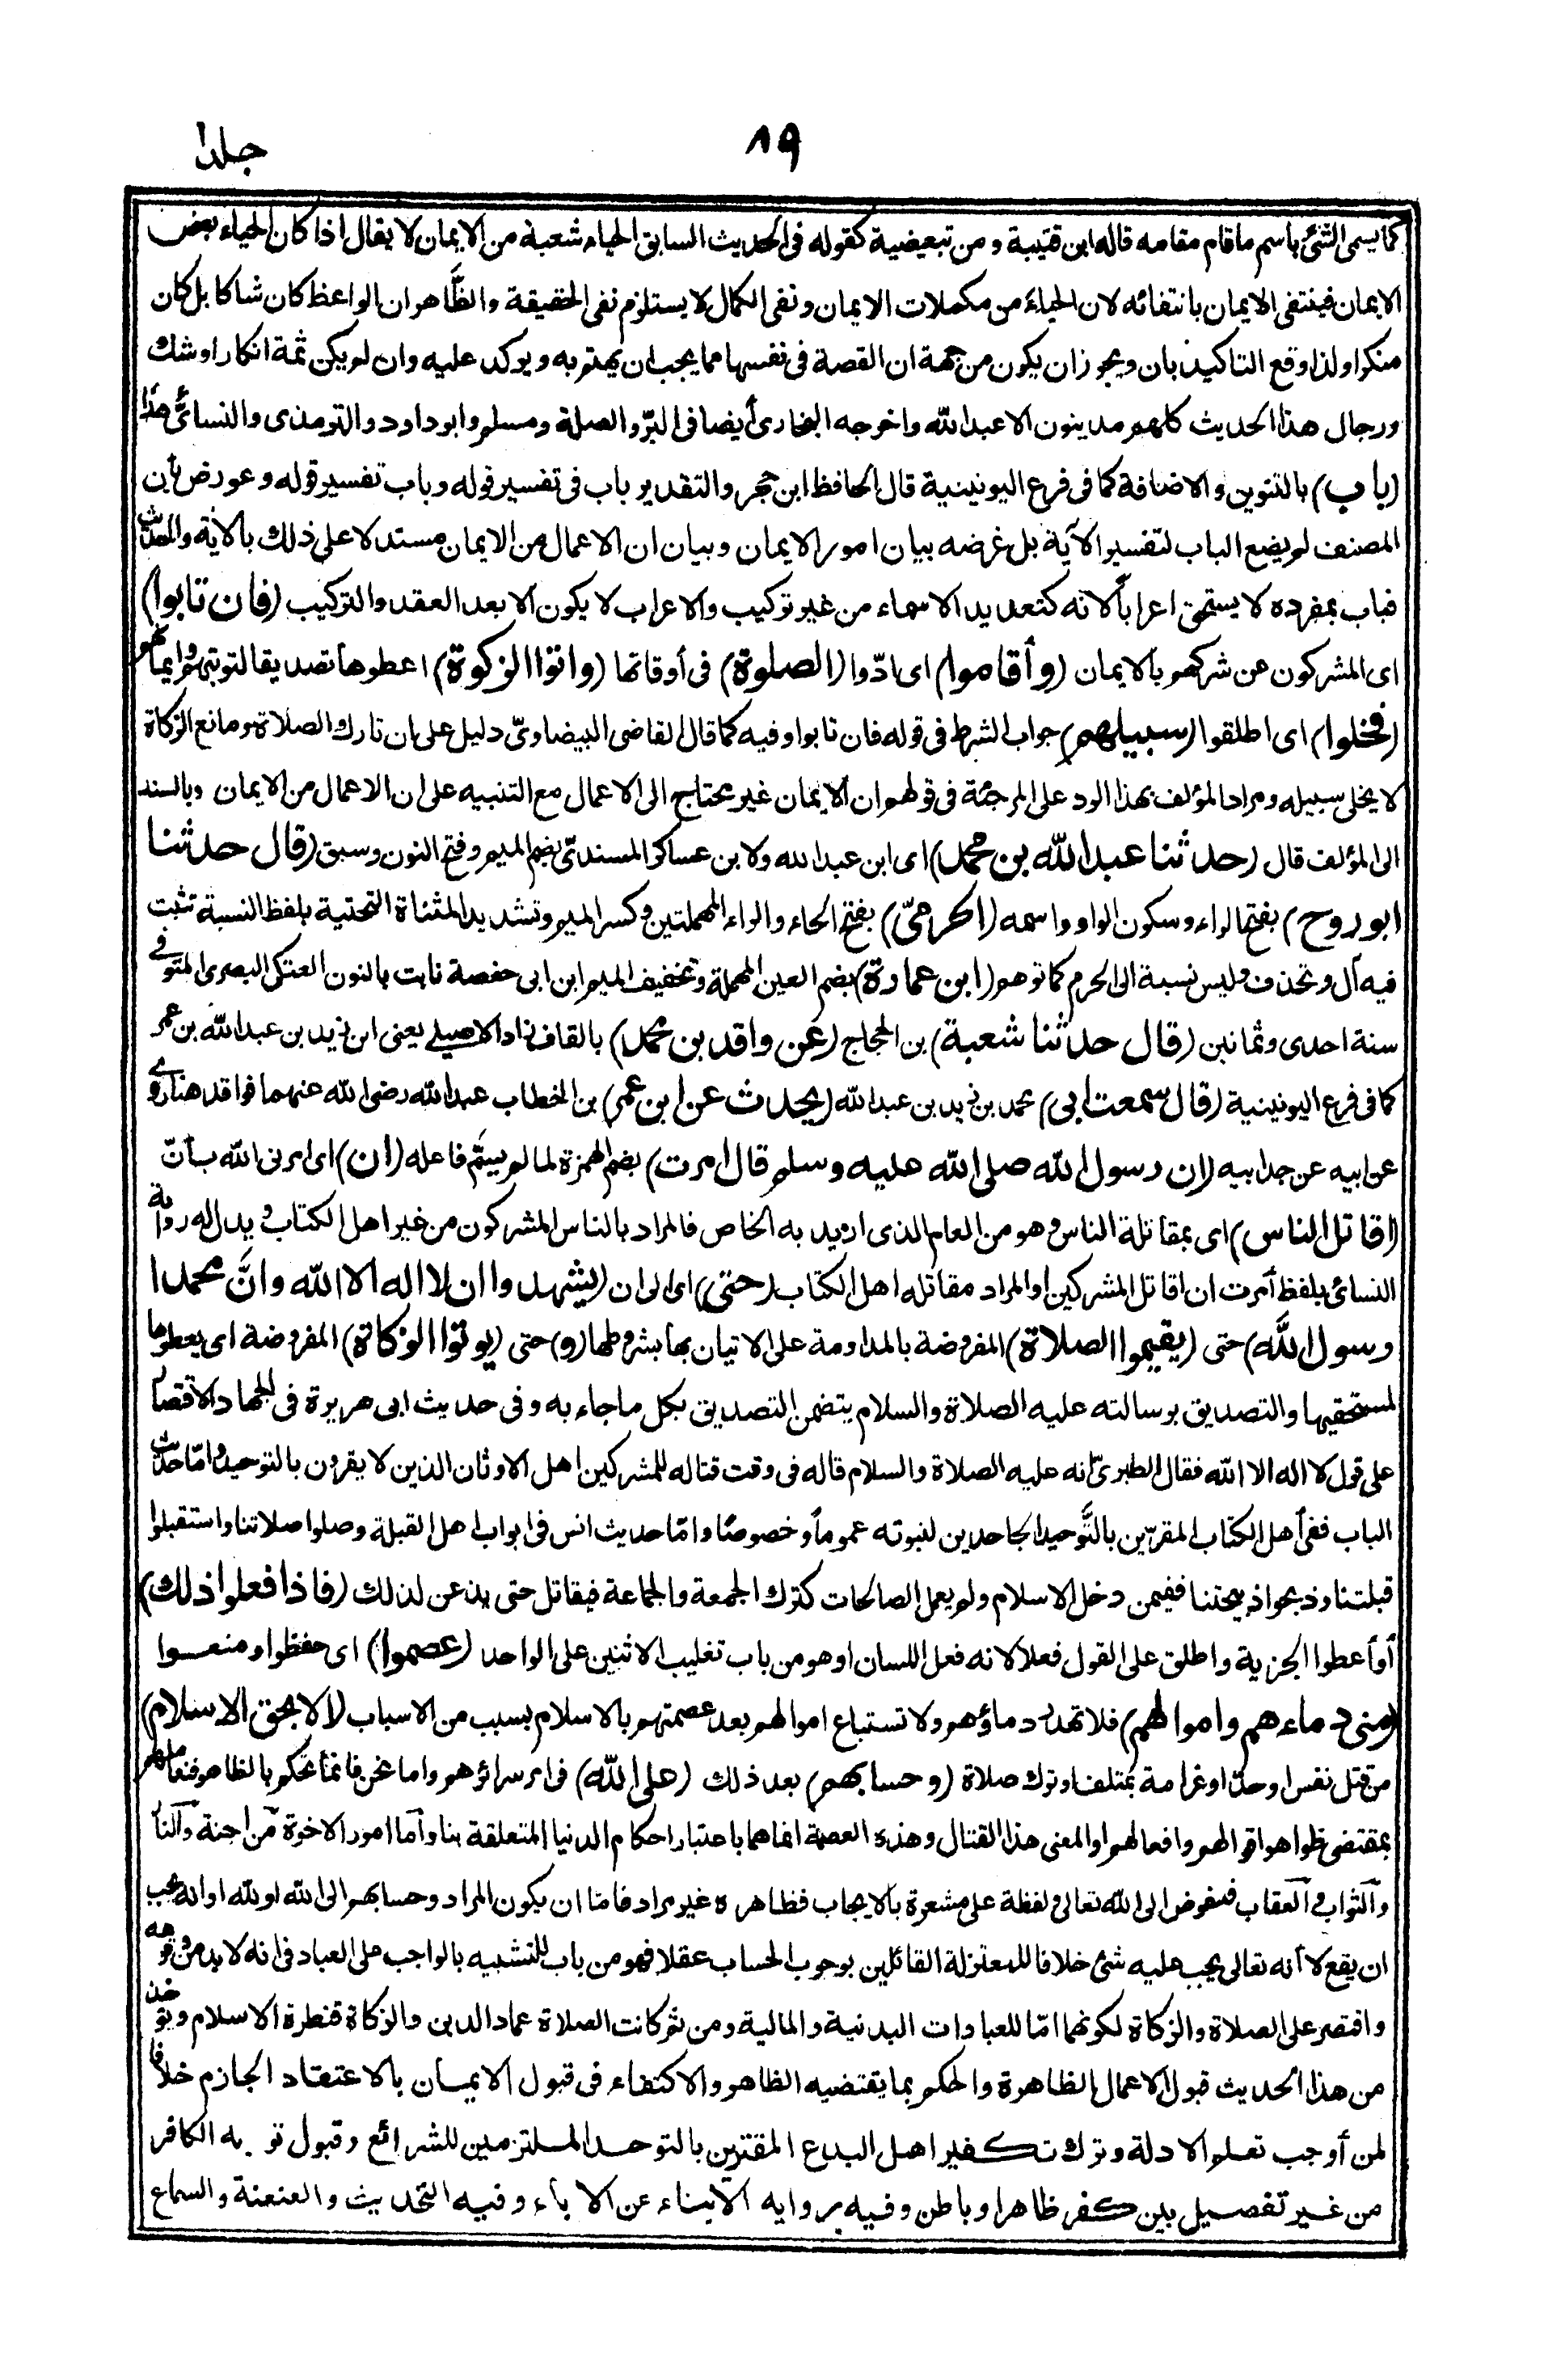 جلد ١
٨٩
كما يسمى الشئ باسم ما قام مقامه قاله ابن قتيبة و من تبعيضية كقوله فى الحديث السابق الحياء شعبة من الايمان لا يقال اذا كان الحياء بعض
الايمان فينتفى الايمان بانتفائه لان الحياءَ من مكملات الايمان و نفى الكمال لا يستلزم نفى الحقيقة والظَّاهر ان الواعظ كان شاكا بل كان
منكرا ولذا وقع التاكيد بان ويجوز ان يكون من جهة ان القصة فى نفسها مما يجب ان يهتم به و يوكد عليه وان لم يكن ثمة انكار او شك
ورجال هذا الحديث كلهم مدينون الا عبد الله واخرجه البخارى أيضا فى البرّ والصلة ومسلم وابو داود والترمذى والنسائىّ هذا
(باب) بالتنوين والاضافة كما فى فرع اليونينية قال الحافظ ابن حجر والتقدير باب فى تفسير قوله وباب تفسير قوله وعورض بأن
المصنف لم يضع الباب لتفسير الآية بل غرضه بيان امور الايمان وبيان ان الاعمال من الايمان مستدلا على ذلك بالاٰية والحديث
فباب بمفرده لا يستحق اعراباً لانه كتعديد الاسماء من غير تركيب والاعراب لا يكون الا بعد العقد والتركيب (فان تابوا)
اى المشركون عن شركهم بالايمان (وأقاموا) اى ادّوا (الصلوة) فى أوقاتها (واتوا الزكوة) اعطوها تصديقا لتوبتهم وايمانهم
(فخلوا) اى اطلقوا (سبيلهم) جواب الشرط فى قوله فان تابوا وفيه كما قال القاضى البيضاوىّ دليل على ان تارك الصلاة ومانع الزكاة
لا يخلى سبيله ومراد المؤلف بهذا الرد على المرجئة فى قولهم ان الايمان غير محتاج الى الاعمال مع التنبيه على ان الاعمال من الايمان وبالسند
الى المؤلف قال (حدثنا عبد الله بن محمد) اى ابن عبد الله ولابن عساكر المسندىّ بضم الميم وفتح النون وسبق (قال حدثنا
ابو روح) بفتح الراء وسكون الواو واسمه (الحرمىّ) بفتح الحاء والراء المهملتين وكسر الميم وتشديد المثناة التحتية بلفظ النسبة تثبت
فيه ال وتحذف وليس نسبة الى الحرم كما توهم (ابن عمارة) بضم العين المهملة وتخفيف الميم ابن ابى حفصة نابت بالنون العتكى البصرى المتوفى
سنة احدى وثمانين (قال حدثنا شعبة) بن الحجاج (عن واقد بن محمد) بالقاف زاد الاصيلے يعنى ابن زيد بن عبد الله بن عمر
كما فى فرع اليونينية (قال سمعت ابى) محمد بن زيد بن عبد الله (يحدث عن ابن عمر) بن الخطاب عبد الله رضى الله عنهما فواقد هنا روى
عن ابيه عن جد ابيه (ان رسول الله صلى الله عليه وسلم قال امرت) بضم الهمزة لما لم يسمّ فاعله (ان) اى امرنى الله بأنّ
(اقاتل الناس) اى بمقاتلة الناس وهو من العام الذى اريد به الخاص فالمراد بالناس المشركون من غير اهل الكتاب ويدل له رواية
النسائى بلفظ أمرت ان اقاتل المشركين او المراد مقاتلة اهل الكتاب (حتى) اى الى ان (يشهدوا ان لا اله الا الله وانَّ محمدا
رسول الله) حتى (يقيموا الصلاة) المفروضة بالمداومة على الاتيان بها بشروطها (و) حتى (يوتوا الزكاة) المفروضة اى يعطوها
لمستحقيها والتصديق برسالته عليه الصلاة والسلام يتضمن التصديق بكل ما جاء به وفى حديث ابى هريرة فى الجهاد الاقتصار
على قول لا اله الا الله فقال الطبرىّ انه عليه الصلاة والسلام قاله فى وقت قتاله للمشركين اهل الاوثان الذين لا يقرون بالتوحيد وامّا حديث
الباب ففى أهل الكتاب المقرّين بالتَّوحيد الجاحدين لنبوته عموماً وخصوصًا وامّا حديث انس فى ابواب اهل القبلة وصلوا صلاتنا واستقبلوا
قبلتنا وذبحوا ذبيحتنا ففيمن دخل الاسلام ولم يعمل الصالحات كترك الجمعة والجماعة فيقاتل حتى يذعن لذلك (فاذا فعلوا ذلك)
أو أعطوا الجزية واطلق على القول فعلا لانه فعل اللسان او هو من باب تغليب الاثنين على الواحد (عصموا) اى حفظوا ومنعوا
(منى دماءهم واموالهم) فلا تهدر دماؤهم ولا تستباح اموالهم بعد عصمتهم بالاسلام بسبب من الاسباب (الا بحق الاسلام)
من قتل نفس او حدّ او غرامة بمتلف او ترك صلاة (وحسابهم) بعد ذلك (على الله) فى امر سرائرهم واما نحن فانما نحكم بالظاهر فنعاملهم
بمقتضى ظواهر اقوالهم وافعالهم او المعنى هذا القتال وهذه العصمة انما هما باعتبار احكام الدنيا المتعلقة بنا وأما امور الاخرة من الجنة والنار
والثواب والعقاب فمفوض الى الله تعالى ولفظة على مشعرة بالايجاب فظاهره غير مراد فامّا ان يكون المراد وحسابهم الى الله او لله او انه يجب
ان يقع لا أنه تعالى يجب عليه شئ خلافا للمعتزلة القائلين بوجوب الحساب عقلا فهو من باب للتشبيه بالواجب على العباد فى انه لا بد من وقوعه
واقتصر على الصلاة والزكاة لكونهما امّا للعبادات البدنية والمالية ومن ثم كانت الصلاة عماد الدين والزكاة قنطرة الاسلام ويؤخذ
من هذا الحديث قبول الاعمال الظاهرة والحكم بما يقتضيه الظاهر والاكتفاء فى قبول الايمان بالاعتقاد الجازم خلافا
لمن أوجب تعلم الادلة وترك تكفير اهل البدع المقترين بالتوحد الملتزمين للشرائع وقبول توبه الكافر
من غير تفصيل بين كفر ظاهر او باطن وفيه روايه الابناء عن الاباء وفيه التحديث والعنعنة والسماع